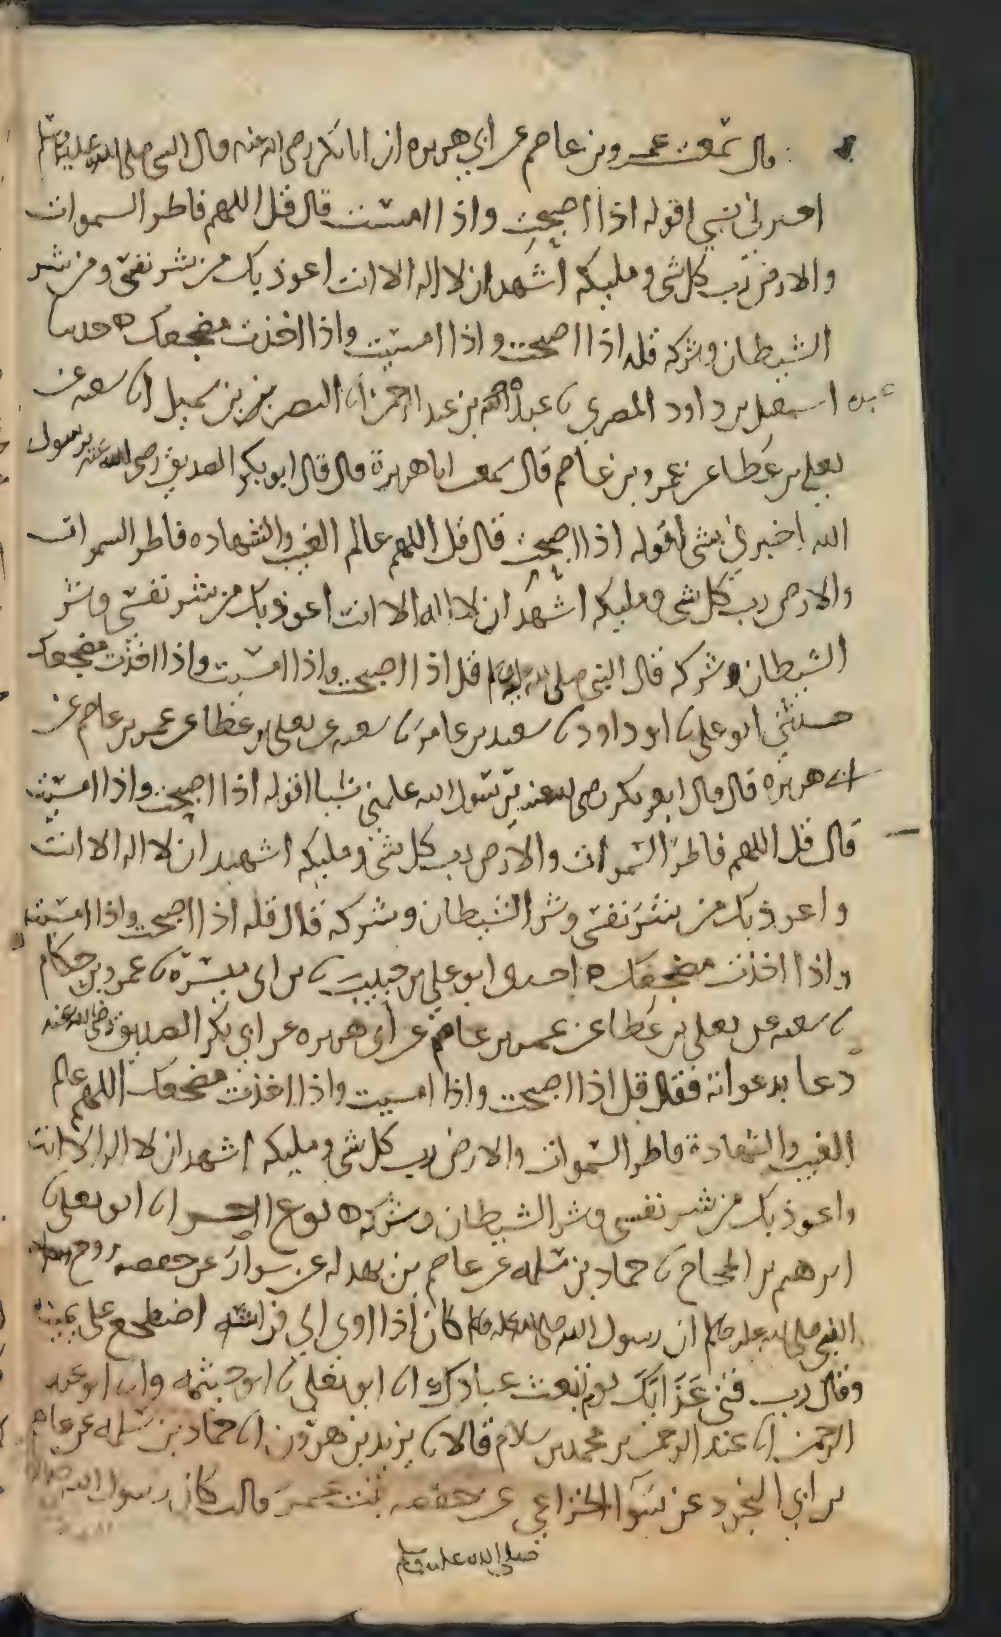 قال سمعت عمرو بن عاصم عن ابي هريره ان ابا بكر رضي الله عنه قال للنبي صلى الله عليه وسلم
اخبرني بشي اقوله اذا اصبحت واذا امسيت قال قل اللهم فاطر السموات
والارض رب كل شي ومليكه اشهد ان لا اله الا انت اعوذ بك من شر نفسي ومن شر
الشيطان وشركه قله اذا اصبحت واذا امسيت واذا اخذت مضجعك ه حدثنا
اسمعيل بن داود المصري عبد الله بن عبد الرحمن النضر بن شميل شعبه عن
يعلى بن عطا عن عمرو بن عاصم قال سمعت ابا هريرة قال قال ابو بكر الصديق رضي الله عنه يرسول
الله اخبرني بشي اقوله اذا اصبحت قال قل اللهم عالم الغيب والشهاده فاطر السموات
والارض رب كل شي ومليكه اشهد ان لا اله الا انت اعوذ بك من شر نفسي وشر
الشيطان وشركه قال النبي صلى الله عليه وسلم قل اذا اصبحت واذا امسيت واذا اخذت مضجعك
حدثني ابو علي ابو داود سعيد بن عامر شعبه عن يعلى بن عطا عن عمرو بن عاصم عن
ابي هريره قال قال ابو بكر رضي الله عنه يرسول الله علمني شيا اقوله اذا اصبحت واذا امسيت
قال قل اللهم فاطر السموات والارض رب كل شي ومليكه اشهد ان لا اله الا انت
واعوذ بك من شر نفسي وشر الشيطان وشركه قال قله اذا اصبحت واذا امسيت
واذا اخذت مضجعك ه ابو علي بن حبيب بن ابي ميسرة عمرو بن حكام
شعبه عن يعلى بن عطا عن عمرو بن عاصم عن ابي هريره عن ابي بكر الصديق رضي الله عنه
دعا بدعوات فقال قل اذا اصبحت واذا امسيت واذا اخذت مضجعك اللهم عالم
الغيب والشهادة فاطر السموات والارض رب كل شي ومليكه اشهد ان لا اله الا انت
واعوذ بك من شر نفسي وشر الشيطان وشركه ه نوع اخر ابو يعلى
ابرهيم بن الحجاج حماد بن سلمه عن عاصم بن بهدله عن سوا عن حفصه زوج
النبي صلى الله عليه وسلم ان رسول الله صلى الله عليه وسلم كان اذا اوى الى فراشه اضطجع على يمينه
وقال رب قني عذابك يوم تبعث عبادك ابو يعلى ابو خيثمه وابو عبد
الرحمن عبد الرحمن بن محمد بن سلام قالا يزيد بن هرون حماد بن سلمه عن عاصم
بن ابي النجود عن سوا الخزاعي عن حفصه بنت عمر قالت كان رسول الله
صلى الله عليه وسلم